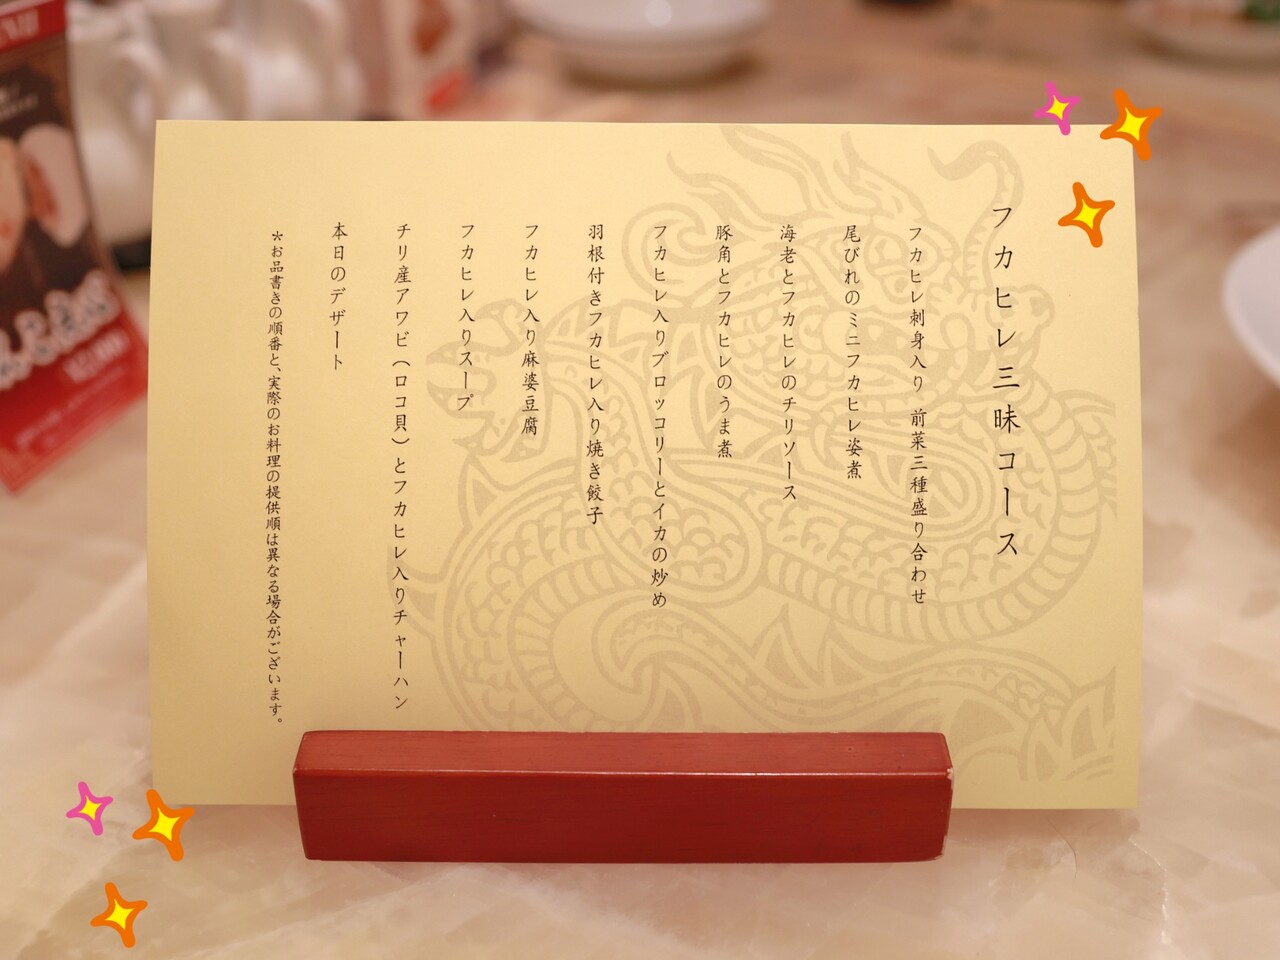 フカヒレ三昧コース
フカヒレ刺身入り 前菜三種盛り合わせ
尾びれのミニフカヒレ姿煮
海老とフカヒレのチリソース
豚角とフカヒレのうま煮
フカヒレ入りブロッコリーとイカの炒め
羽根付きフカヒレ入り焼き餃子
フカヒレ入り麻婆豆腐
フカヒレ入りスープ
チリ産アワビ（ロコ貝）とフカヒレ入りチャーハン
本日のデザート
＊お品書きの順番と、実際のお料理の提供順は異なる場合がございます。